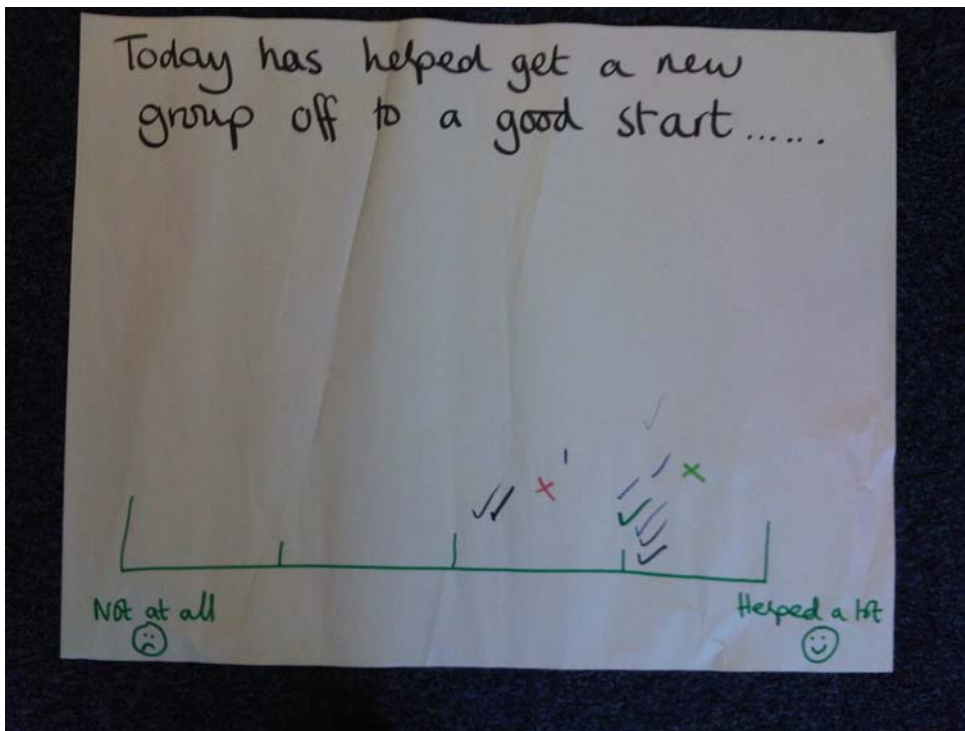 Today has helped get a new
group off to a good start......
Not at all
Helped a lot